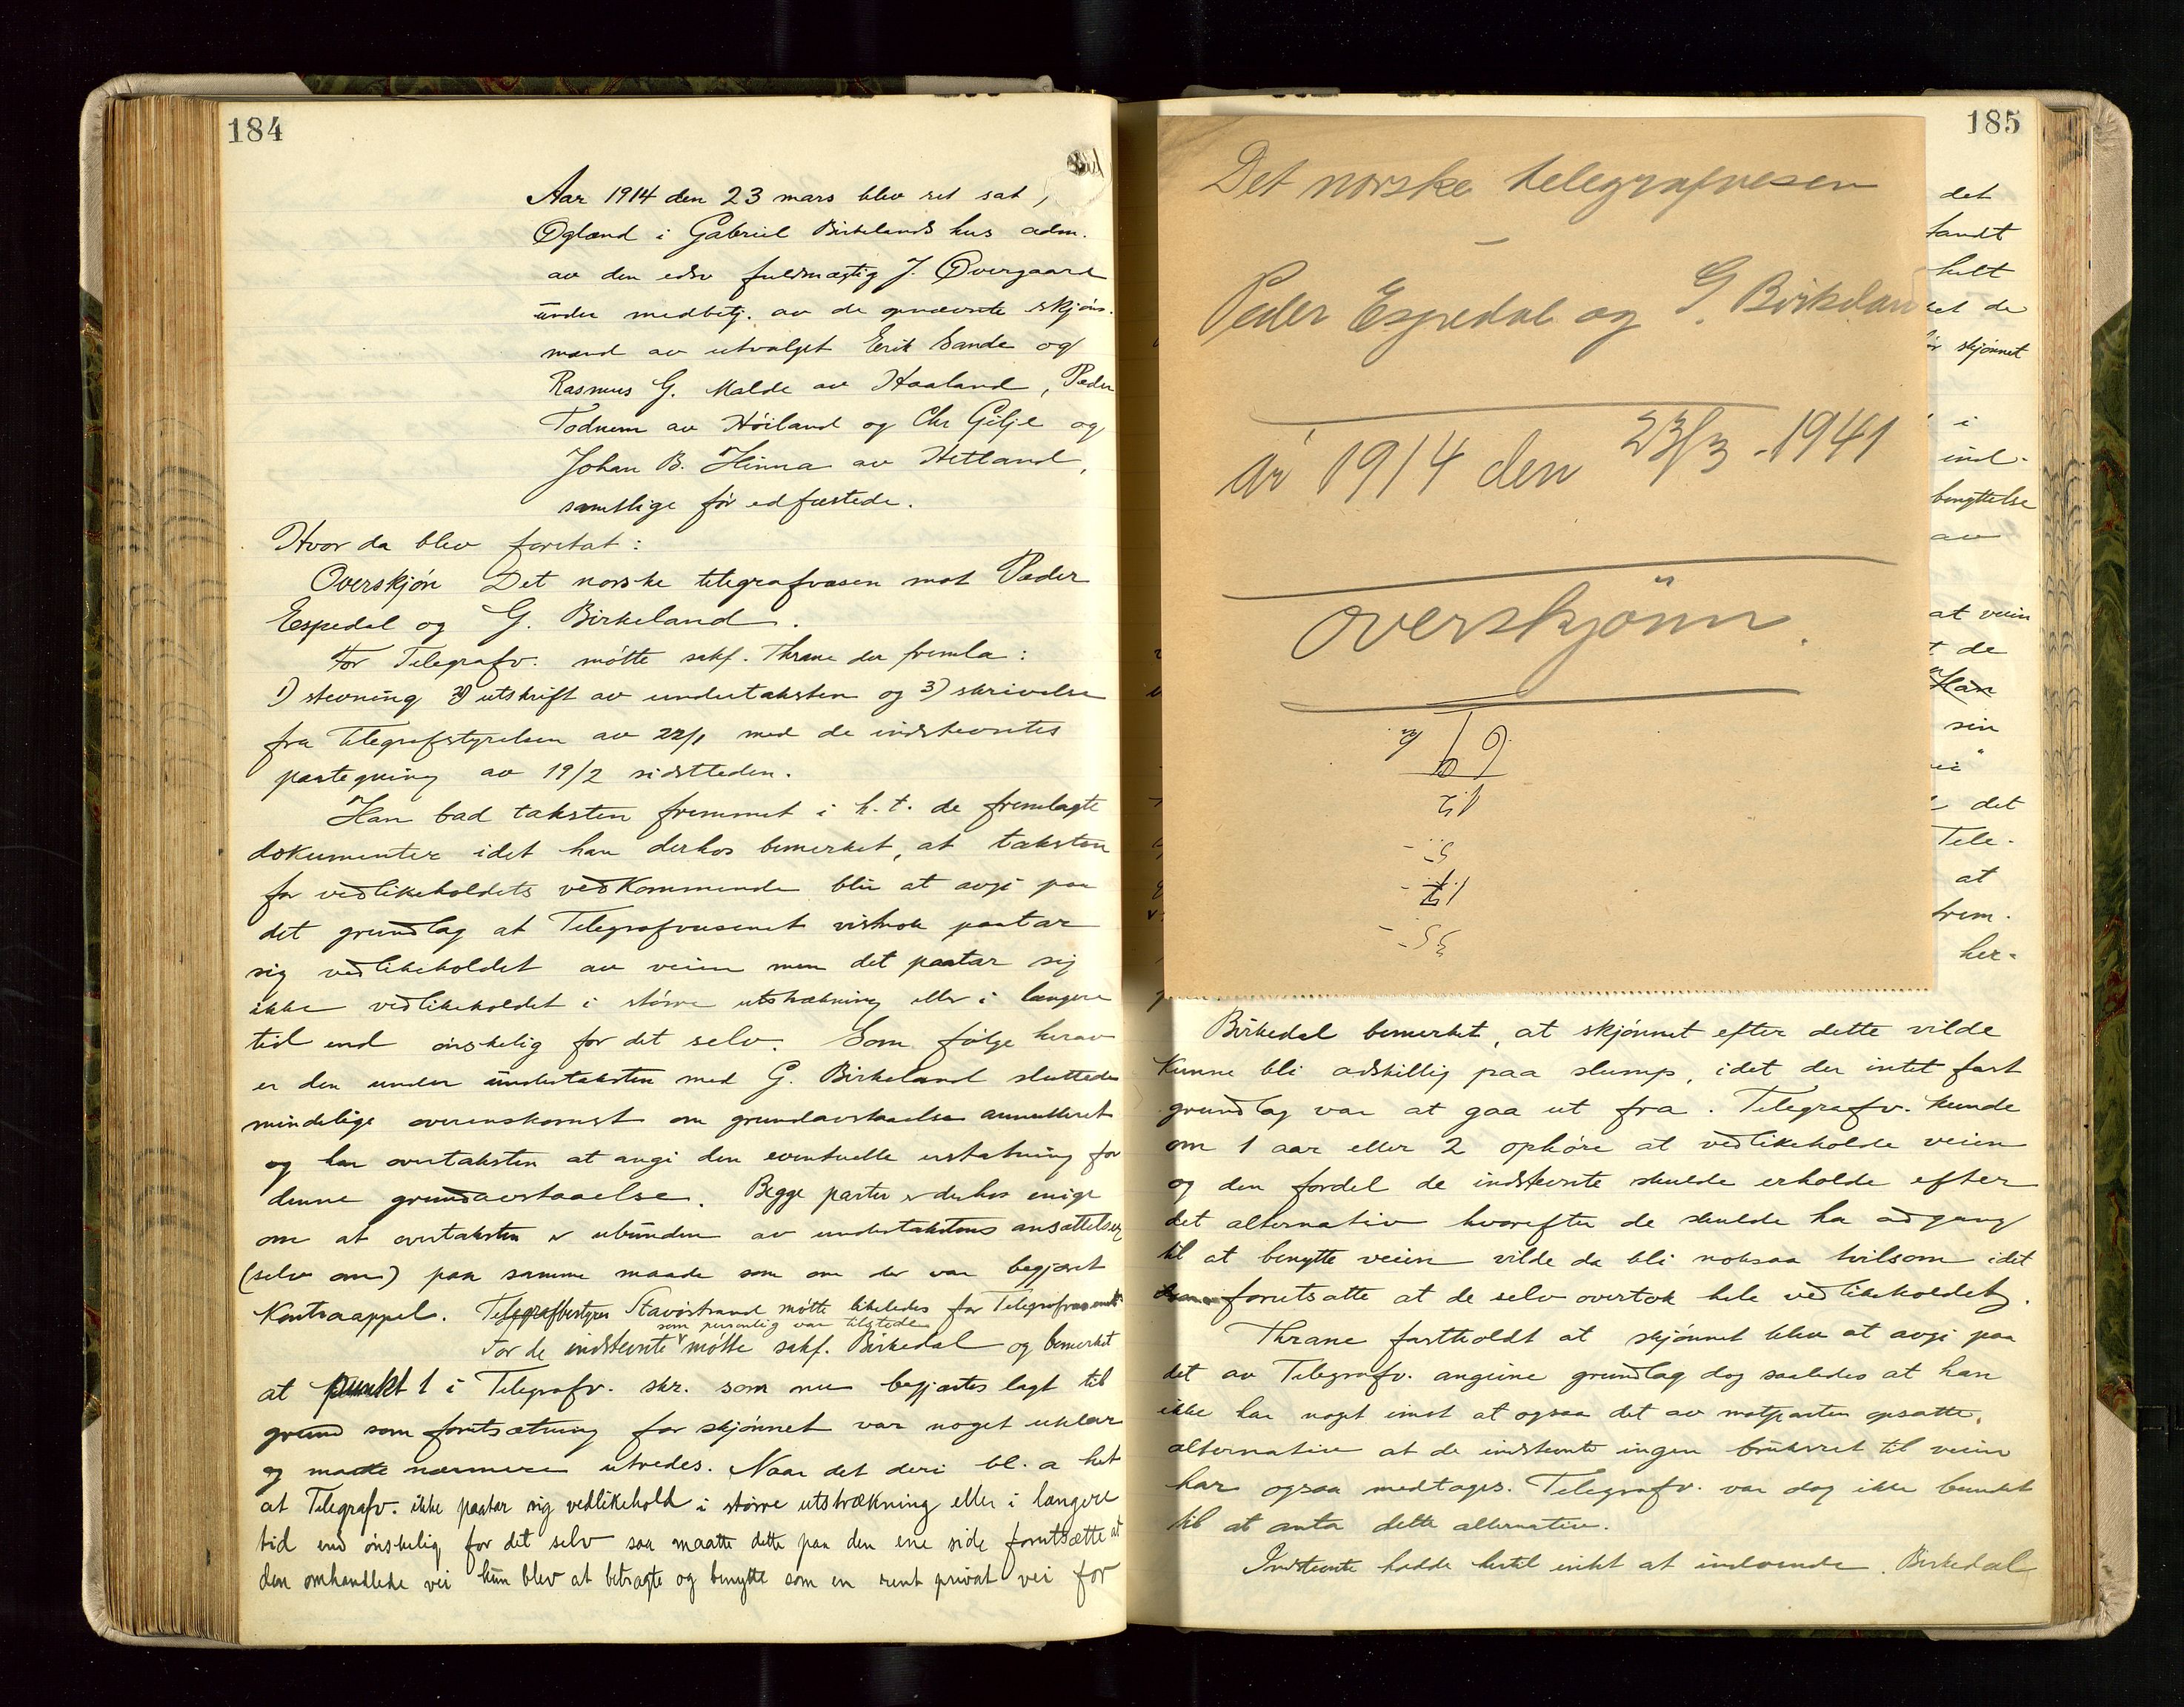 184
Aar 1914 den 23 mars blev ret sat,
Øgland i Gabriel Birkelands hus adm.
av den edsv fuldmægtig J. Øvergaard
under medbetj. av de opnævnte skjøns.
mænd av utvalget Eerik Sande og
Rasmus G. Malde av Haaland, Peder
Todnem av Høiland og Chr Gilje og
Johan B. Hinna av Hetland,
samtlige før edfæstede.
Hvor da blev foretat:
Overskjøn Det norske telegrafvæsen mot Peder
Espedal og G. Birkeland.
For Telegrafv. møtte sakf. Thrane der fremla:
1) stevning 2) utskrift av undertaksten og 3) skrivelse
fra Telegrafstyrelsen av 22/1 med de indstevntes
paategning av 19/2 sidstleden.
Han bad taksten fremmet i h.t. de fremlagte
dokumenter idet han derhos bemerket, at taksten
for vedlikeholdets vedkommende blir at avgi paa
det grundlag at Telegrafvæsenet vistnok paatar
sig vedlikeholdet av veien men det paatar sig
ikke vedlikeholdet i større utstrækning eller i længere
tid end ønskelig for det selv. Som følge herav
er den under undertaksten med G. Birkeland sluttede
mindelige overenskomst om grundavstaaelse annulleret
og har overtaksten at angi den eventuelle erstatning for
denne grundavstaaelse. Begge parter er derhos enige
om at overtaksten er ubunden av undertakstens ansættelser
(selv om) paa samme maade som om der var begjæret
Kontraappel. Telegrafbestyrer Stavøstrand møtte likeledes for Telegrafvæsenet
som personlig var tilstede
For de indstevnte møtte sakf. Birkedal og bemerket
at punkt 1 i Telegrafv. skr. som nu begjæres lagt til
grund som forutsætning for skjønnet var noget uklar
og maatte nærmere utredes. Naar det deri bl. a het
at Telegrafv. ikke paatar sig vedlikehold i større utstrækning eller i længere
tid end ønskelig for det selv saa maatte dette paa den ene side forutsætte at
den omhandlede vei kun blev at betragte og benytte som en rent privat vei for
185
Det norske telegrafvesen
–
Peder Espedal og G. Birkeland
år 1914 den 23/3 - 1941
overskjönn.
det
helt
det de
skjønnet
i
ind-
benyttelse
av
at veien
de
Han
sin
det
Tele-
at
frem.
her-
Birkedal bemerket, at skjønnet efter dette vilde
kunne bli adskillig paa slump, idet der intet fast
grundlag var at gaa ut fra. Telegrafv. kunde
om 1 aar eller 2 ophøre at vedlikeholde veien
og den fordel de indstevnte skulde erholde efter
det alternativ hvorefter de skulde ha adgang
til at benytte veien vilde da bli noksaa tvilsom idet
forutsatte at de selv overtok hele vedlikeholdet.
Thrane fastholdt at skjønnet blev at avgi paa
det av Telegrafv. angivne grundlag dog saaledes at han
ikke har noget imot at ogsaa det av motparten opsatte,
alternativ at de indstevnte ingen bruksret til veien
har ogsaa medtages. Telegrafv. var dog ikke bundet
til at anta dette alternativ.
Indstevnte hadde hertil intet at indvende. Birkedal